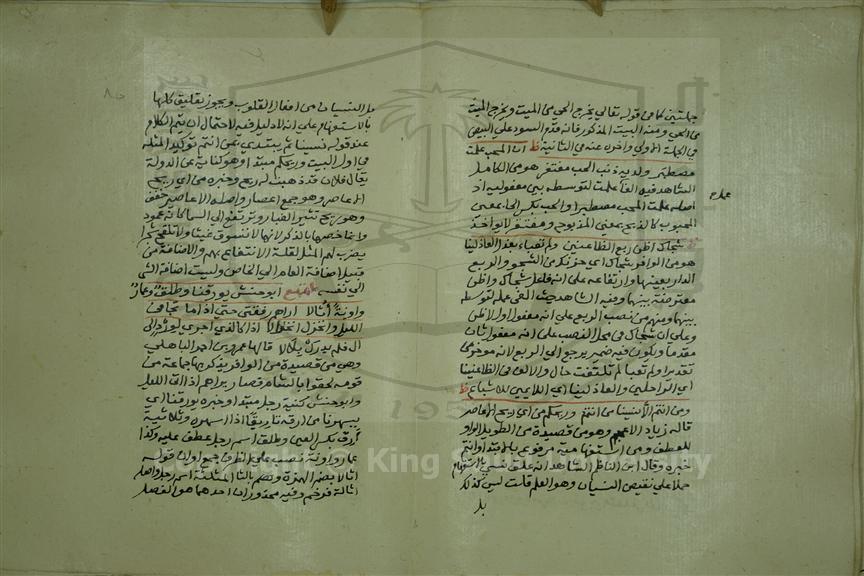 جملتين كما في قوله تعالى يخرج الحي من الميت ويخرج الميت
من الحي ومنه البيت المذكور فانه قدم السود على البيض
في الجملة الاولى واخره عنه في الثانية ظ ان المحب علمت
مصطبر ولديه ذنب الحب مغتفر هو من الكامل
الشاهد فيه الغاء علمت لتوسطه بين مفعوليه اذ
اصله علمت المحب مصطبرا والحب بكسر الحاء بمعنى
المحبوب كالذبح بمعنى المذبوح ومغتفر لا يواخذ
شجاك اظن ربع الظاعنين ولم تعبا بعذل العاذلينا
هو من الوافر شجاك اي حزنك من الشجو والربع
الدار بعينها وارتفاعه على انه فاعل شجاك واظن
معترضة بينهما وفيه الشاهد حيث الغى عمله لتوسطه
بينهما ومنهم من نصب الربع على انه مفعول اول لاظن
وعلى ان شجاك في محل النصب على انه مفعول ثان
مقدما ويكون فيه ضمير يرجع الى الربع لانه موخر في
تقديرا ولم تعبا لم تلتفت حال والالف في الظاعنينا
اي الراحلين والعاذلينا اي اللايمين للاشباع ظ
ومن انتم انا نسينا من انتم وريحكم من اي ريح الاعاصر
قاله زياد الاعجم وهو من قصيدة من الطويل الواو
للعطف ومن استفهامية مرفوع بالابتدا وانتم
خبره وقال ابن الناظم الشاهد انه علق نسي بالاستفهام
حملا على نقيض النسيان وهو العلم قلت ليس كذلك
بل
بل النسيان من افعال القلوب ويجوز تعليق كلها
بالاستفهام على انه لا دليل فيه لاحتمال ان يتم الكلام
عند قوله نسينا ثم يبتدي بمن انتم توكيد المثله
في اول البيت وريحكم مبتدا وهو كناية عن الدولة
يقال فلان قد ذهبت له ريح وخبره من اي ريح
الاعاصر وهو جمع اعصار واصله الاعاصير فخفف
وهو ريح تثير الغبار وترتفع الى السما كانه عمود
وانما خصها بالذكر لانها لا تسوق غيثا ولا تلقح شجرا
يضرب لهم المثل لقلة الانتفاع بهم والاضافة من
قبيل اضافة العام الى الخاص وليست اضافة الشي
الى نفسه ابو حنش يورقنا وطلق وعمار
واونة اثالا اراهم رفقتي حتى اذا ما تجافى
الليل وانخزل انخزالا اذا انا كالذي اجرى لورد الى
ال فلم يدرك بلالا قالها عمرو بن احمر الباهلي
وهي من قصيدة من الوافر يذكر بها جماعة من
قومه لحقوا بالشام فصار يراهم اذا اتى الليل
وابو حنش كنية رجل مبتدا وخبره يورقنا اي
يسهرنا من ارقه تاريقا اذا اسهره وثلاثية
ارق بكسر العين وطلق اسم رجل عطف عليه وكذا
عمار واونة نصب على الظرف جمع اوان قوله
اثالا بضم الهمزة وضم بالثا المثلثة اسم رجل واصله
اثالة فرخم وفيه محذوران احدهما هو الفصل